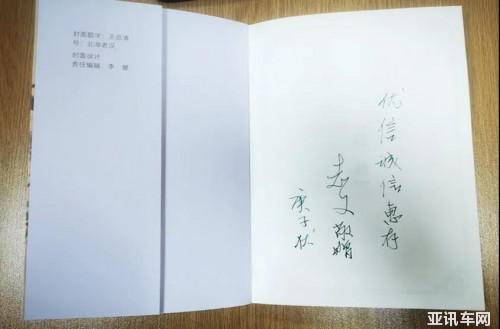 封面题字：王
号：北海老汉
封面设计
责任编辑：李
优信诚信惠存
赵文敬赠
庚子秋
亚讯车网